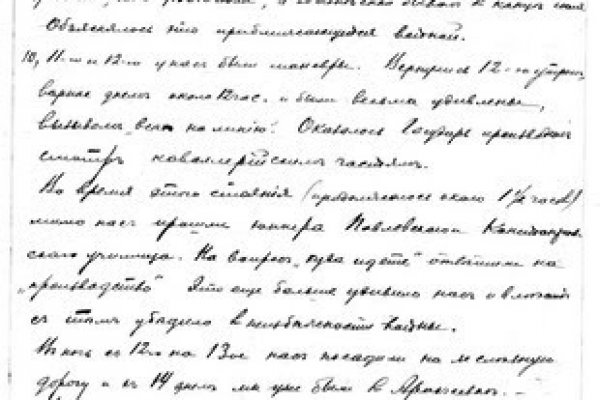 Объяснялось это приближающейся войной.
10, 11-го и 12-го у нас были маневры. Вернулись 12-го утром,
вернее днем около 12 час. и были весьма удивлены,
вызовом "всех на линию". Оказалось Государь производит
смотр кавалерийским частям.
Во время этого стояния (продолжалось около 1½ часов)
мимо нас прошли юнкера Павловского
училища. На вопрос "куда идете" ответили на
"производство" Это еще больше удивило нас и
с тем убедило в неизбежности войны.
В ночь с 12го на 13ое нас посадили на железную
дорогу и в 14 днем мы уже были в